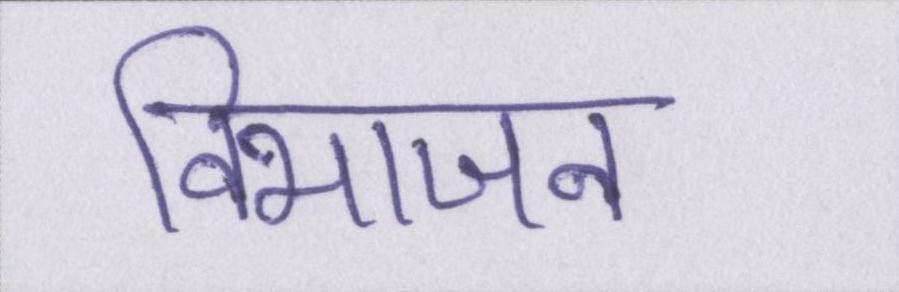 विभाजन